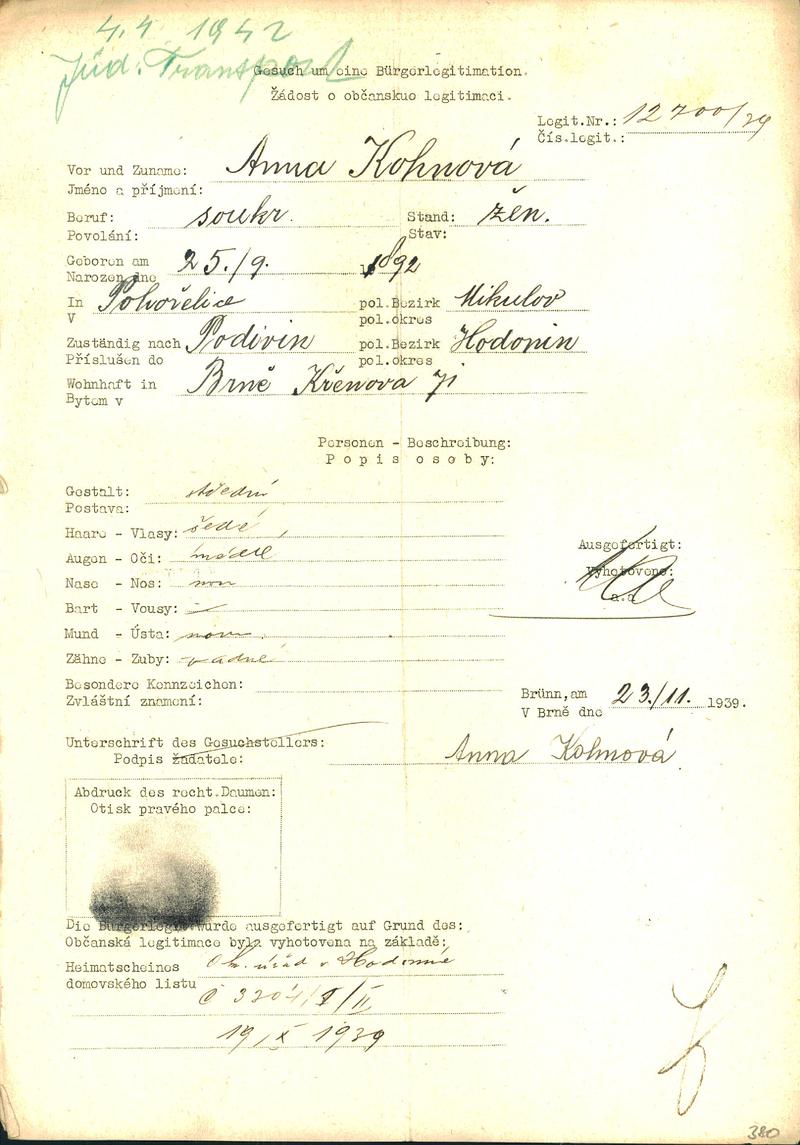 4.4 1942
Jüd. Transport
Gesuch um eine Bürgerlegitimation.
Žádost o občanskuo legitimaci.
Legit.Nr.: 12700/39
Čís.legit.:
Vor und Zuname: Anna Kohnová
Jméno a příjmení:
Beruf: soukr. Stand: žen.
Povolání: Stav:
Geboren am 25./9. 1892
Narozen dne
In Pohořelice pol.Bezirk Mikulov
V pol.okres
Zuständig nach Podivin pol.Bezirk Hodonin
Příslušen do pol.okres
Wohnhaft in Brně Křenova
Bytem v
Personen - Beschreibung:
Popis osoby:
Gestalt: střední
Postava:
Haare - Vlasy: šedé
Augen - Oči:
Nase - Nos:
Bart - Vousy:
Mund - Ústa:
Zähne - Zuby: vadné
Besondere Kennzeichen:
Zvláštní znamení:
Ausgefertigt:
Vyhotoveno:
Brünn,am 23./11. 1939.
V Brně dne
Unterschrift des Gesuchstellers:
Podpis žadatele: Anna Kohnová
Abdruck des recht.Daumen:
Otisk pravého palce:
Die Bürgerlegit.wurde ausgefertigt auf Grund des:
Občanská legitimace byla vyhotovena na základě:
Heimatscheines Ok. úřad v Hodoníně
domovského listu č 3304/I/II
19/X 1939
380